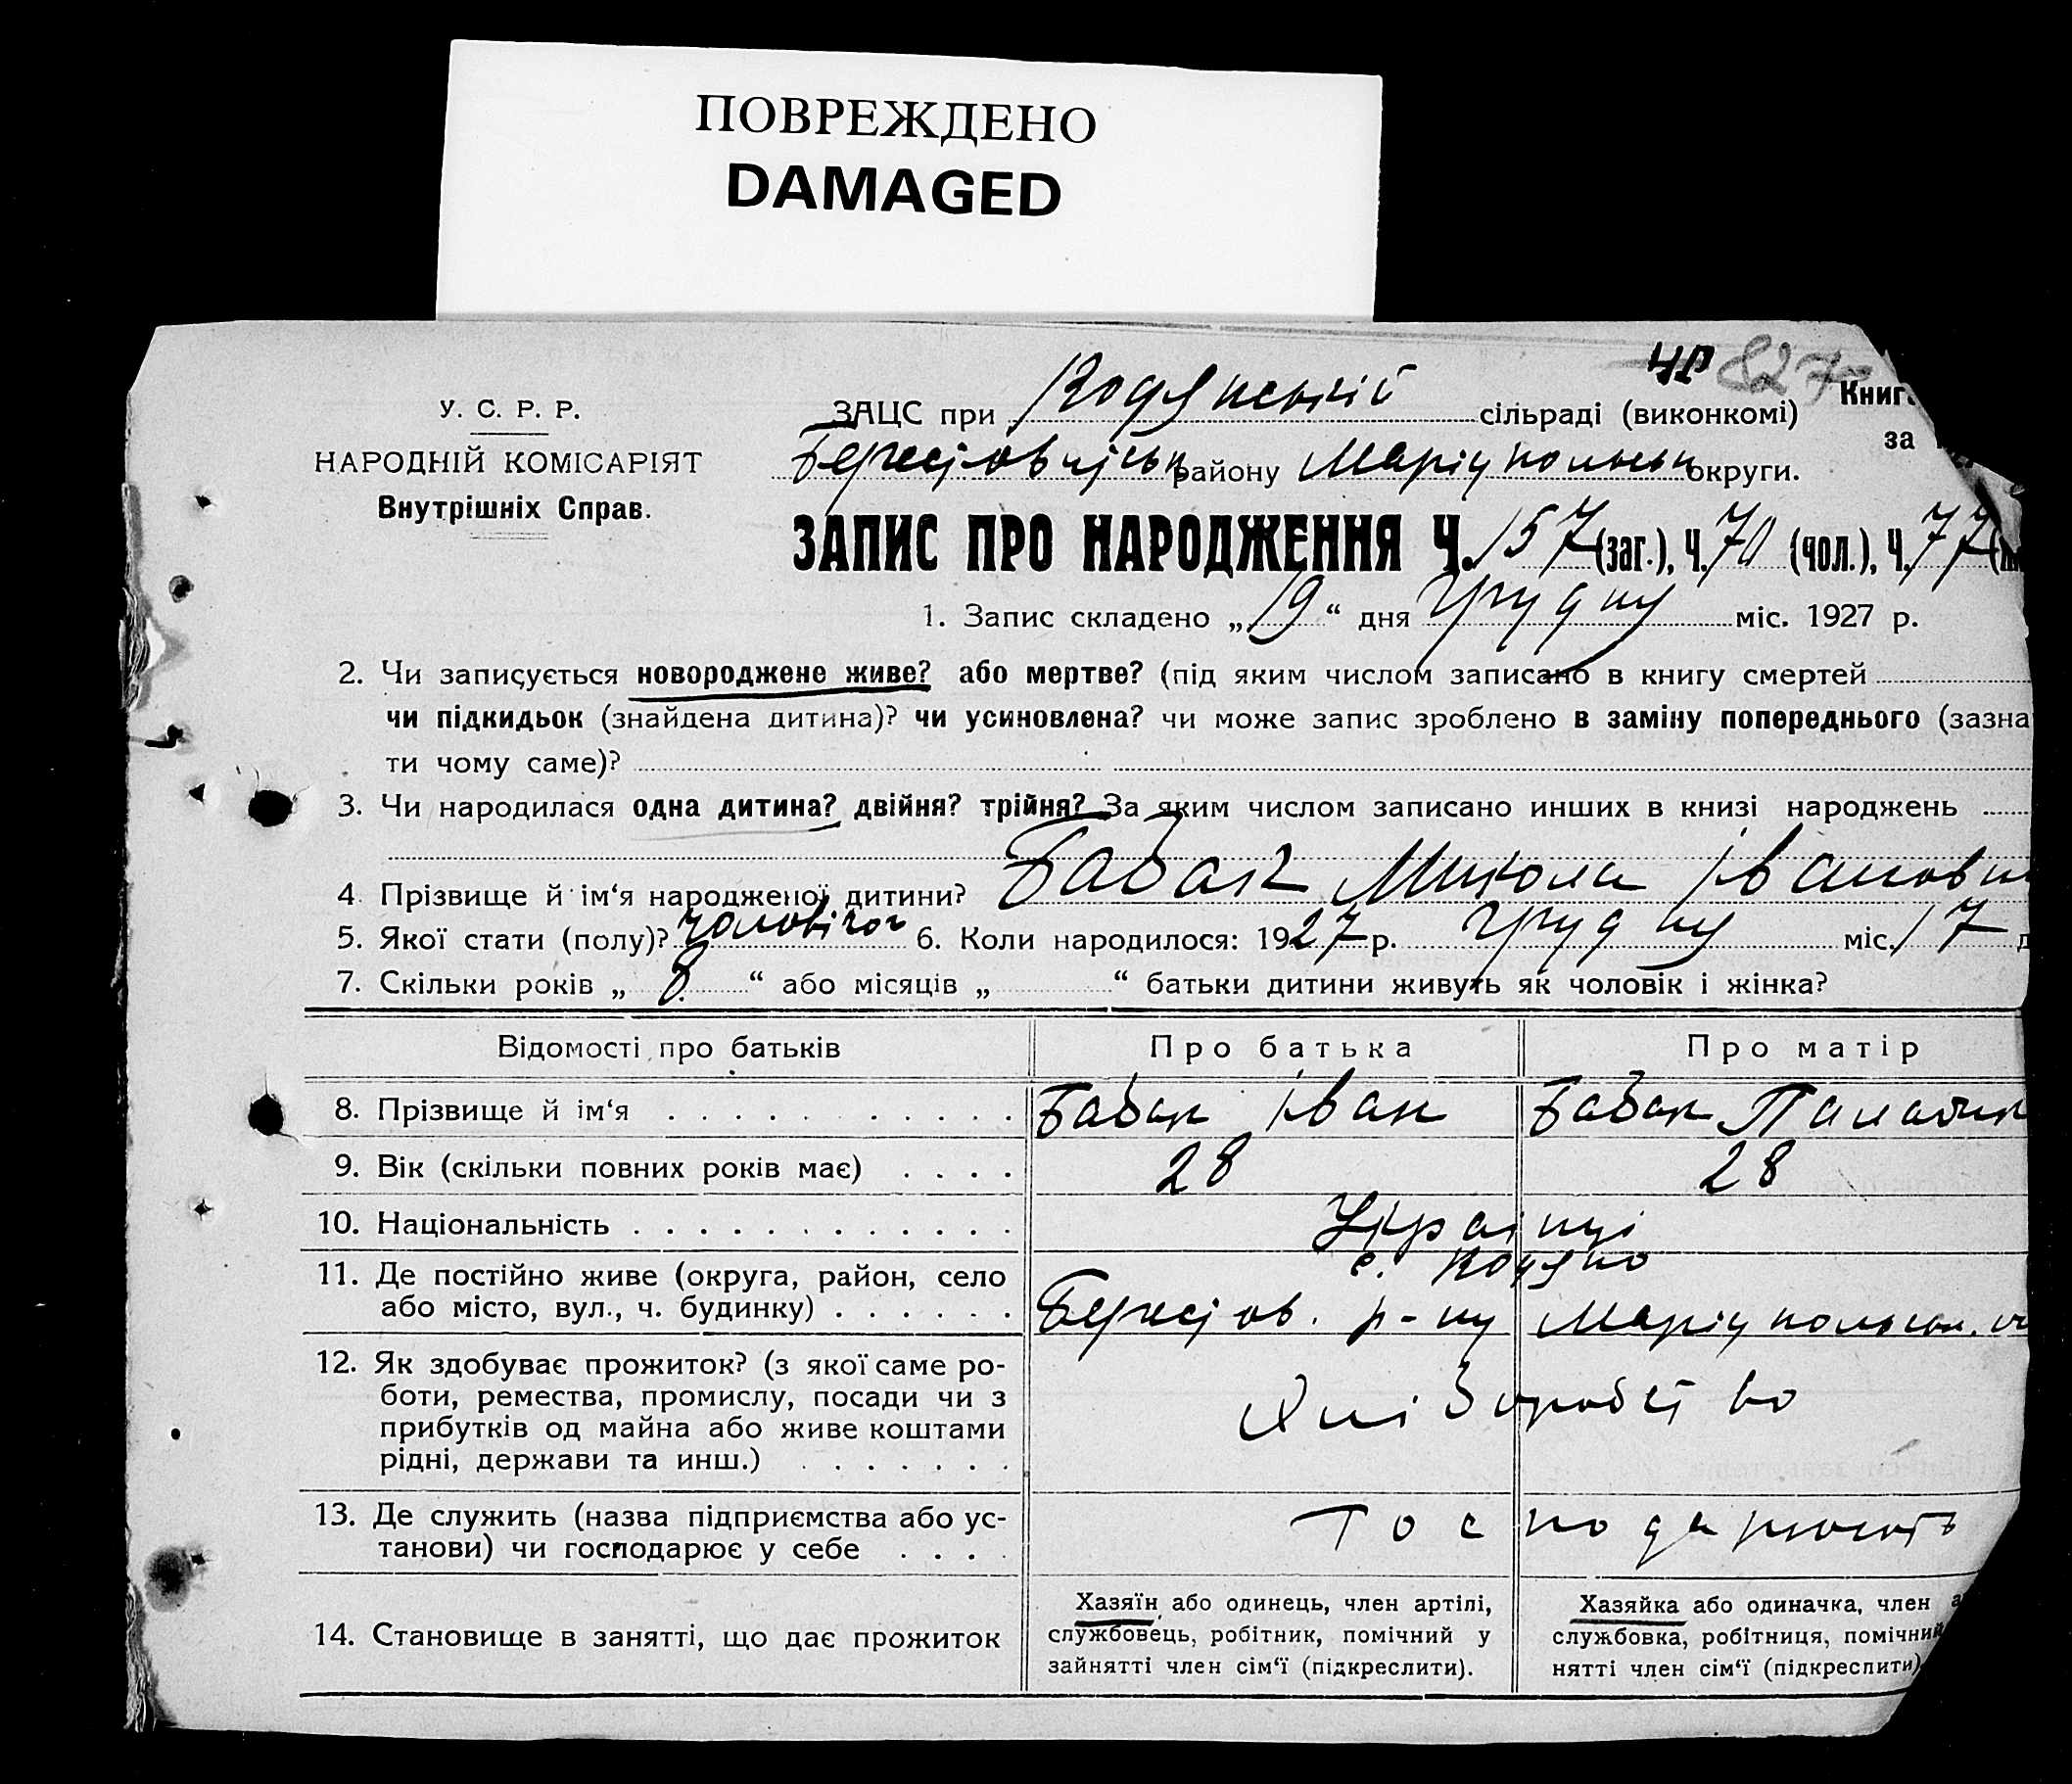 ПОВРЕЖДЕНО
DAMAGED
чр 827
У. С. Р. Р.
НАРОДНІЙ КОМІСАРІЯТ
Внутрішніх Справ.
ЗАЦС при Водянській сільраді (виконкомі)
району Маріупольськ округи.
Книг
за
ЗАПИС ПРО НАРОДЖЕННЯ Ч. 157 (заг.), Ч. 70 (чол.), Ч. 77
1. Запис складено „ 19 “ дня грудну міс. 1927 р.
2. Чи записується новороджене живе? або мертве? (під яким числом записано в книгу смертей
чи підкидьок (знайдена дитина)? чи усиновлена? чи може запис зроблено в заміну попереднього (зазна
ти чому саме)?
3. Чи народилася одна дитина? двійня? трійня? За яким числом записано инших в книзі народжень
4. Прізвище й ім‘я народженої дитини? Бабак Микола Іванович
5. Якої стати (полу)? чоловічої 6. Коли народилося: 1927 р. грудну міс. 17 д
7. Скільки років „ 8 “ або місяців „ “ батьки дитини живуть як чоловік і жінка?
Відомості про батьків Про батька Про матір
8. Прізвище й ім‘я Бабак Іван Бабак
9. Вік (скільки повних років має) 28 28
10. Національність Українці
11. Де постійно живе (округа, район, село с. Водяно
або місто, вул., ч. будинку) р-ну Маріупольськ.
12. Як здобуває прожиток? (з якої саме ро-
боти, ремества, промислу, посади чи з Хліборобство
прибутків од майна або живе коштами
рідні, держави та инш.)
13. Де служить (назва підприємства або ус- Господарюють
танови) чи господарює у себе
14. Становище в занятті, що дає прожиток
Хазяїн або одинець, член артілі,
службовець, робітник, помічний у
зайнятті член сім‘ї (підкреслити).
Хазяйка або одиначка, член а
службовка, робітниця, помічний
нятті член сім‘ї (підкреслити)